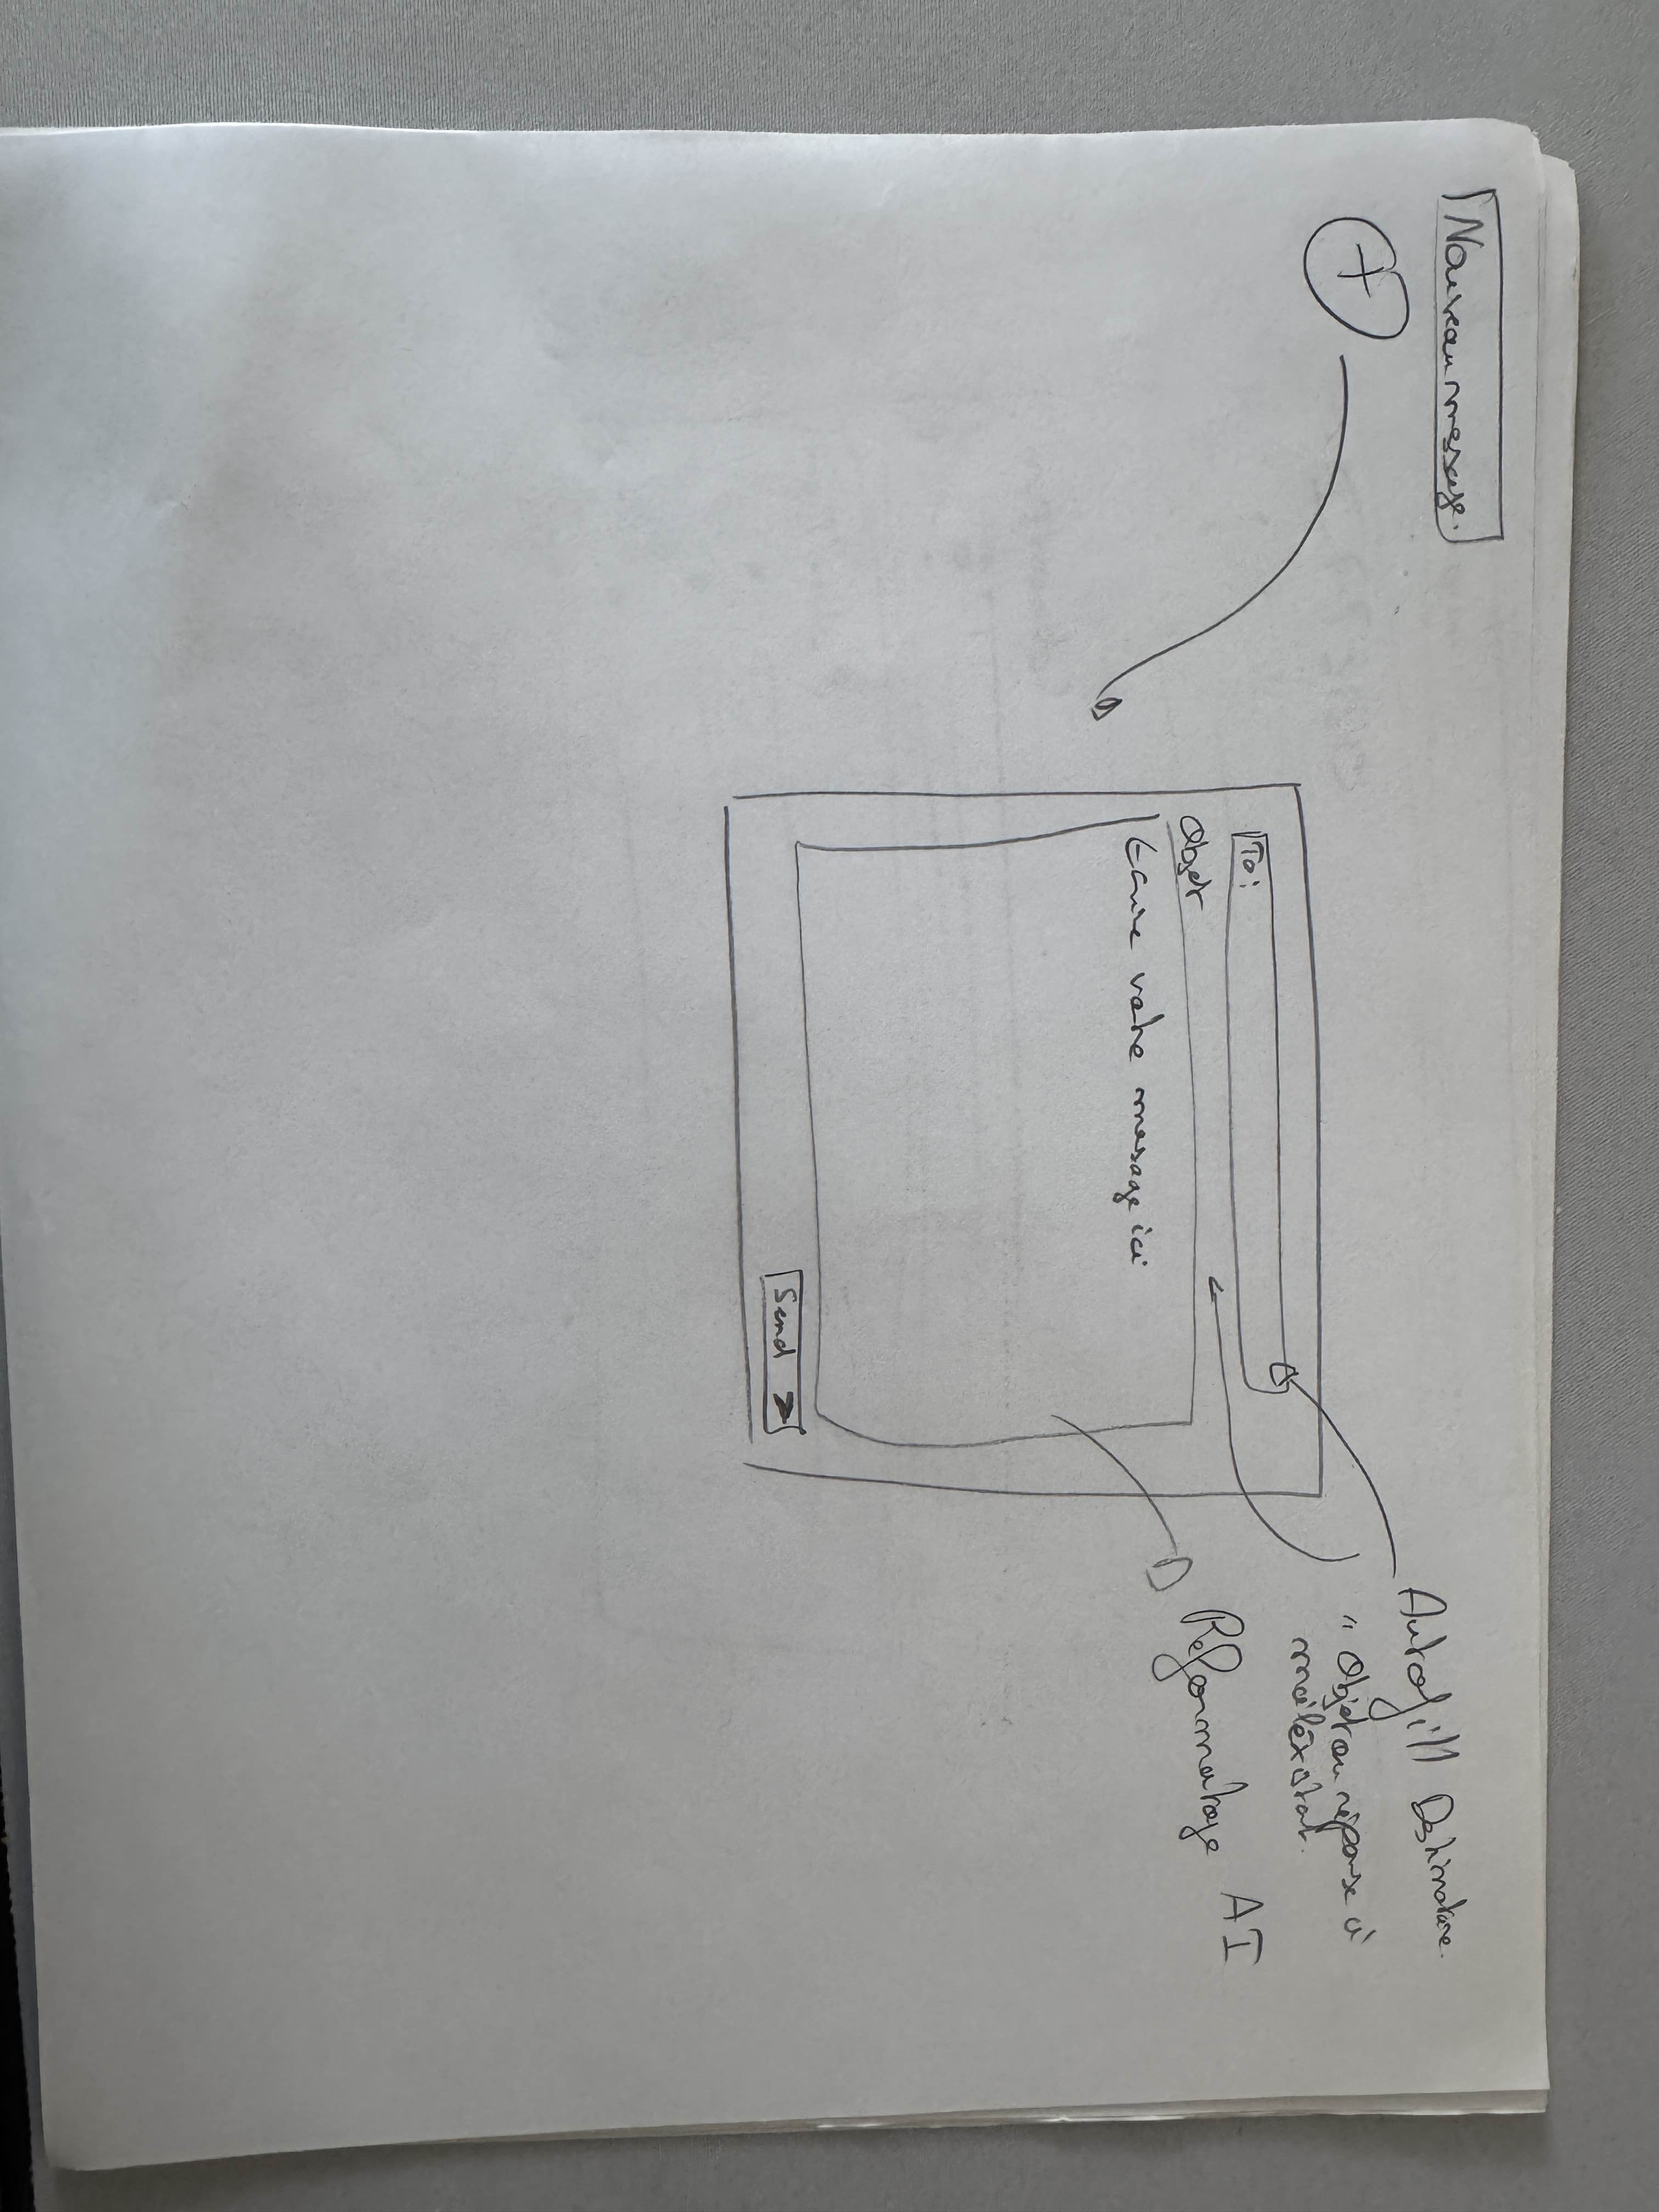 Nouveau message.
+
To:
Objet
Ecrire votre message ici
Send
Autofill Destinataire.
" Objet ou réponse à
mail existant.
Reformatage AI